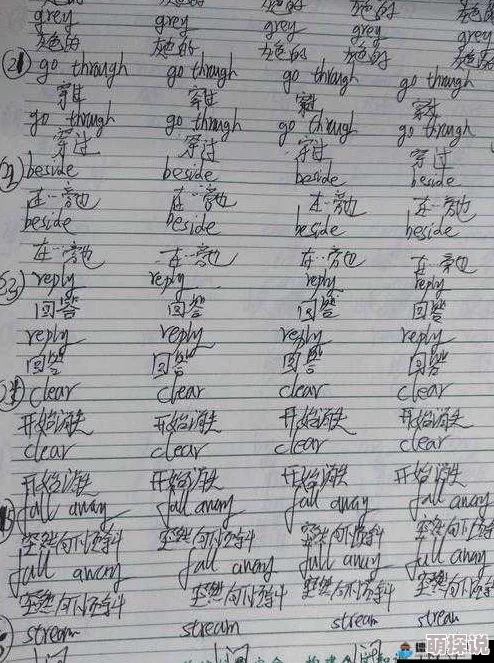 grey grey grey grey
灰色的 灰色的 灰色的 灰色的
go through go through go through go through
穿过 穿过 穿过 穿过
go through go through go through go through
穿过 穿过 穿过 穿过
beside beside beside beside
在…旁边 在…旁边 在…旁边 在…旁边
beside beside beside beside
在…旁边 在…旁边 在…旁边 在…旁边
reply reply reply reply
回答 回答 回答 回答
reply reply reply reply
回答 回答 回答 回答
clear clear clear clear
开始消失 开始消失 开始消失 开始消失
clear clear clear clear
开始消失 开始消失 开始消失 开始消失
fall away fall away fall away fall away
突然向下倾斜 突然向下倾斜 突然向下倾斜 突然向下倾斜
fall away fall away fall away fall away
突然向下倾斜 突然向下倾斜 突然向下倾斜 突然向下倾斜
stream stream stream stream
萌探说